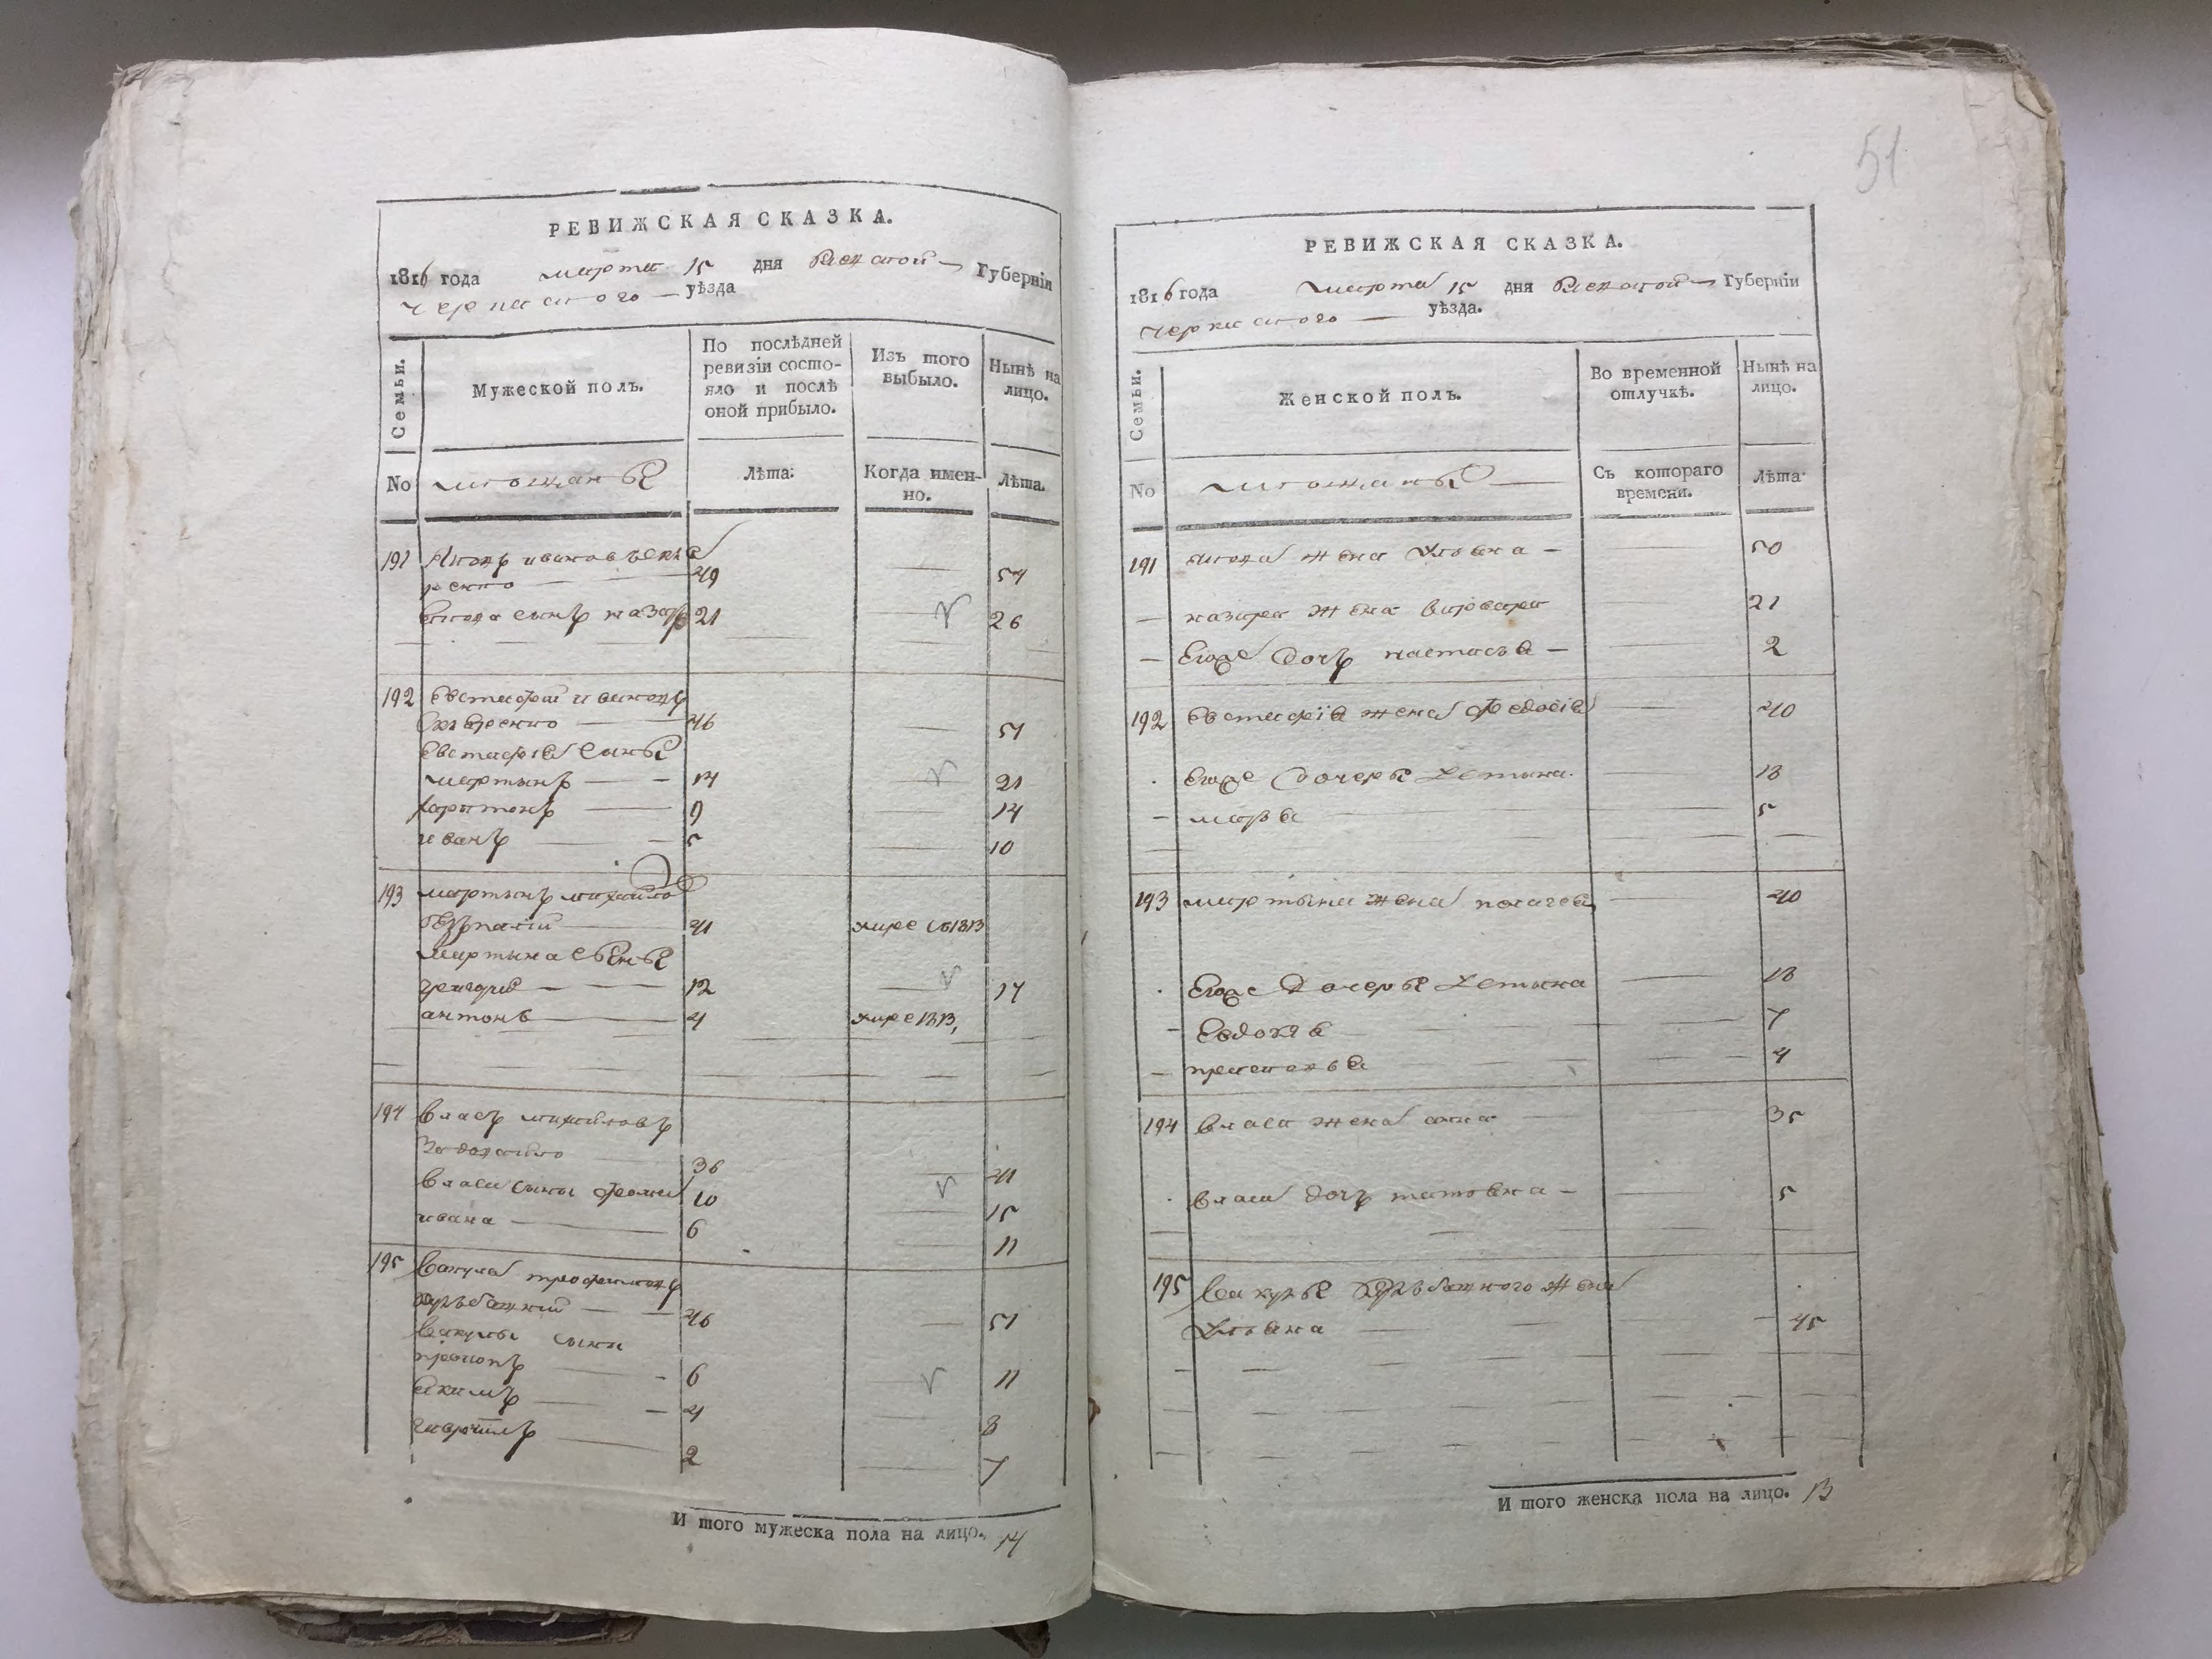 51
РЕВИЖСКАЯ СКАЗКА.
1816 года марта 15 дня Киевской Губерніи
Черкаского уѣзда
Семьи.
Мужеской полъ.
По послѣдней ревизіи состояло и послѣ оной прибыло.
Изъ того выбыло.
Нынѣ на лицо.
No
мещаны
Лѣта:
Когда именно.
Лѣта.
191 Яковъ ивановъ
49 54
Якова сынъ назаръ 21 26
192 Евстафий ивановъ
46 51
Евстафія сыны
мартынъ 14 21
харитонъ 9 14
иванъ 5 10
193 мартынъ михайловъ
41 умре въ 1813
Мартына сыны
григорий 12 17
антонъ 4 умре 1813
194 власъ михайловъ
36 41
власа сыны 10 15
ивана 6 11
195 Вакула трофимовъ
46 51
Вакулы сыны
прокопъ 6 11
Якимъ 4 8
гаврiилъ 2 7
И того мужеска пола на лицо. 14
РЕВИЖСКАЯ СКАЗКА.
1816 года марта 15 дня Киевской Губерніи
Черкаского уѣзда.
Семьи.
Женской полъ.
Во временной отлучкѣ.
Нынѣ на лицо.
No
мещаны
Съ котораго времени.
Лѣта
191 Якова жена Ульяна 50
назара жена варвара 21
Егоже дочь настасья 2
192 Евстафія жена Федосія 40
Егоже дочеры Устина 13
марья 5
193 мартына жена пелагея 40
Егоже дочеры Устина 13
Евдокія 7
4
194 власа жена анна 35
власа дочь татьяна 5
195 Вакулы жена
Ульяна 45
И того женска пола на лицо. 13